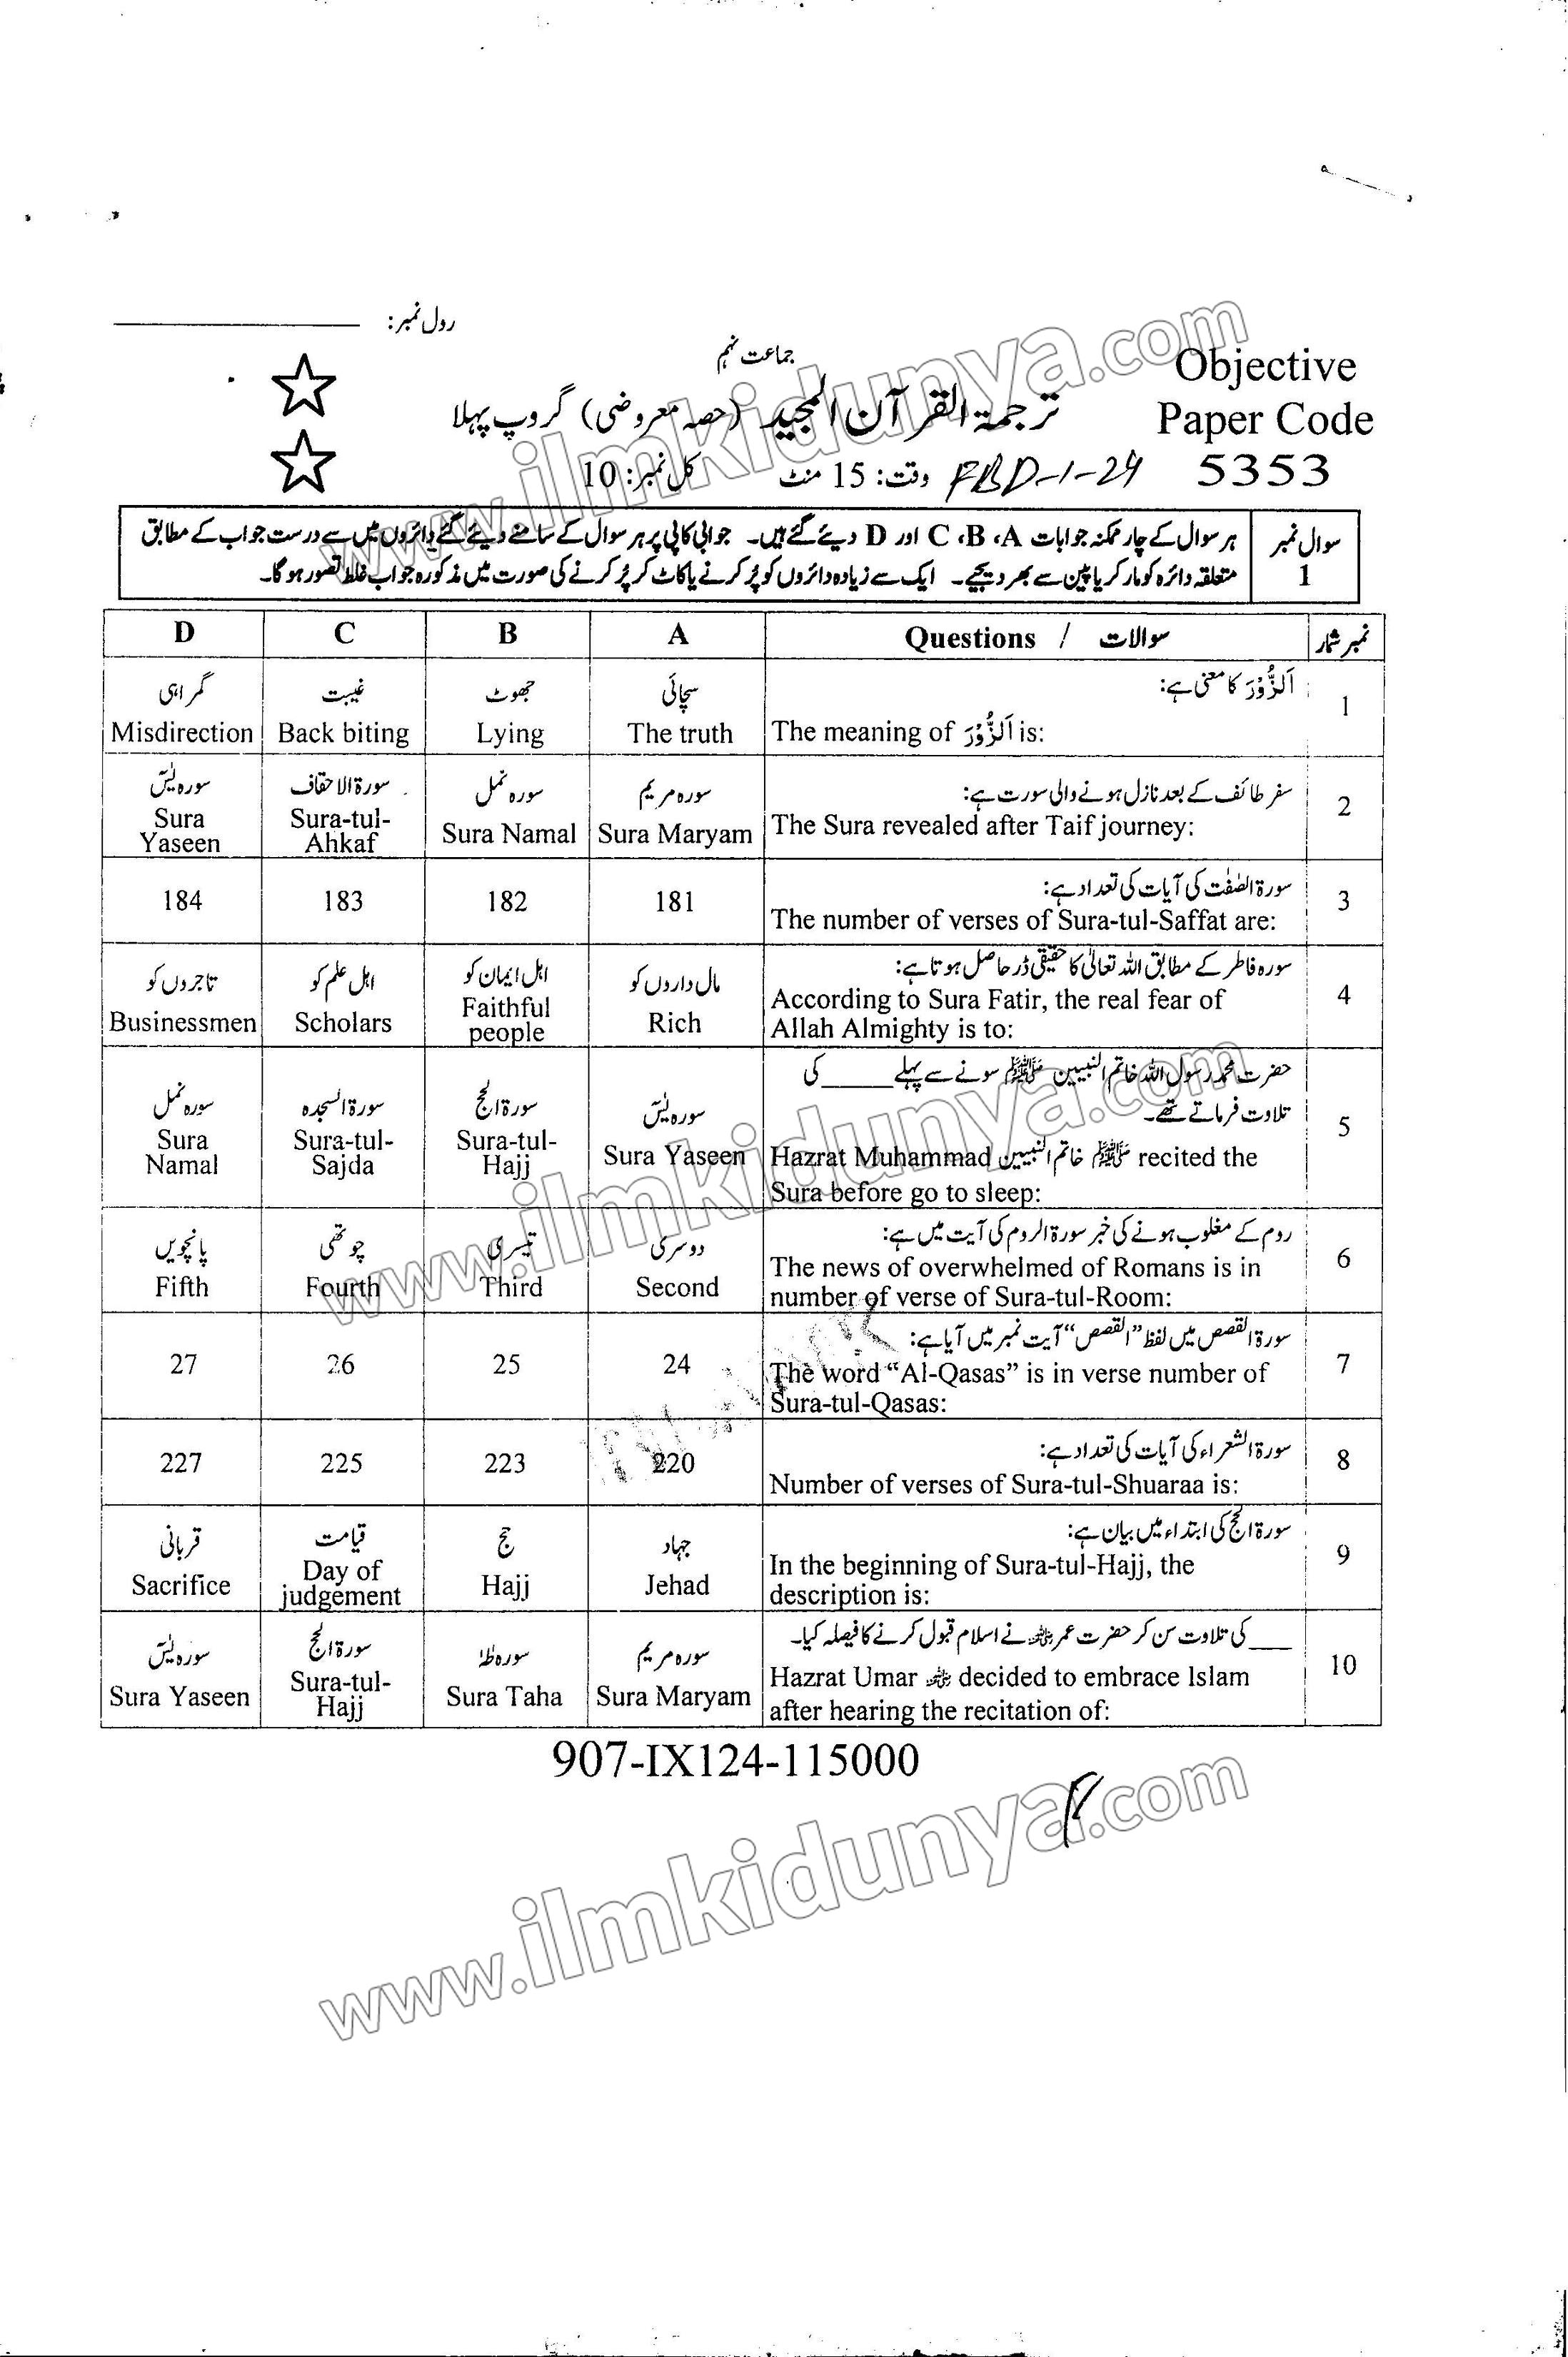 رول نمبر:
جماعت نہم
Objective
ترجمۃ القرآن المجید (حصہ معروضی) گروپ پہلا
Paper Code
وقت: 15 منٹ کل نمبر: 10
FBD-1-24
5353
سوال نمبر 1
ہر سوال کے چار ممکنہ جوابات A، B، C اور D دیئے گئے ہیں۔ جوابی کاپی پر ہر سوال کے سامنے دیئے گئے دائروں میں سے درست جواب کے مطابق
متعلقہ دائرہ کو مارکر یا پین سے بھر دیجیے۔ ایک سے زیادہ دائروں کو پُر کرنے یا کاٹ کر پُر کرنے کی صورت میں مذکورہ جواب غلط تصور ہوگا۔
نمبر شمار
سوالات / Questions
A
B
C
D
1
اَلزُّوْرَ کا معنی ہے:
The meaning of اَلزُّوْرَ is:
سچائی
The truth
جھوٹ
Lying
غیبت
Back biting
گمراہی
Misdirection
2
سفر طائف کے بعد نازل ہونے والی سورت ہے:
The Sura revealed after Taif journey:
سورہ مریم
Sura Maryam
سورہ نمل
Sura Namal
سورۃ الاحقاف
Sura-tul-
Ahkaf
سورہ یٰسٓ
Sura
Yaseen
3
سورۃ الصّٰفّٰت کی آیات کی تعداد ہے:
The number of verses of Sura-tul-Saffat are:
181
182
183
184
4
سورہ فاطر کے مطابق اللہ تعالیٰ کا حقیقی ڈر حاصل ہوتا ہے:
According to Sura Fatir, the real fear of
Allah Almighty is to:
مال داروں کو
Rich
اہل ایمان کو
Faithful
people
اہل علم کو
Scholars
تاجروں کو
Businessmen
5
حضرت محمد رسول اللہ خاتم النبیین ﷺ سونے سے پہلے _____ کی
تلاوت فرماتے تھے۔
Hazrat Muhammad خاتم النبیین ﷺ recited the
Sura before go to sleep:
سورہ یٰسٓ
Sura Yaseen
سورۃ الحج
Sura-tul-
Hajj
سورۃ السجدہ
Sura-tul-
Sajda
سورہ نمل
Sura
Namal
6
روم کے مغلوب ہونے کی خبر سورۃ الروم کی آیت میں ہے:
The news of overwhelmed of Romans is in
number of verse of Sura-tul-Room:
دوسری
Second
تیسری
Third
چوتھی
Fourth
پانچویں
Fifth
7
سورۃ القصص میں لفظ "القصص" آیت نمبر میں آیا ہے:
The word “Al-Qasas” is in verse number of
Sura-tul-Qasas:
24
25
26
27
8
سورۃ الشعراء کی آیات کی تعداد ہے:
Number of verses of Sura-tul-Shuaraa is:
220
223
225
227
9
سورۃ الحج کی ابتداء میں بیان ہے:
In the beginning of Sura-tul-Hajj, the
description is:
جہاد
Jehad
حج
Hajj
قیامت
Day of
judgement
قربانی
Sacrifice
10
____ کی تلاوت سن کر حضرت عمرؓ نے اسلام قبول کرنے کا فیصلہ کیا۔
Hazrat Umar ؓ decided to embrace Islam
after hearing the recitation of:
سورہ مریم
Sura Maryam
سورہ طٰہٰ
Sura Taha
سورۃ الحج
Sura-tul-
Hajj
سورہ یٰسٓ
Sura Yaseen
907-IX124-115000
www.ilmkidunya.com
www.ilmkidunya.com
www.ilmkidunya.com